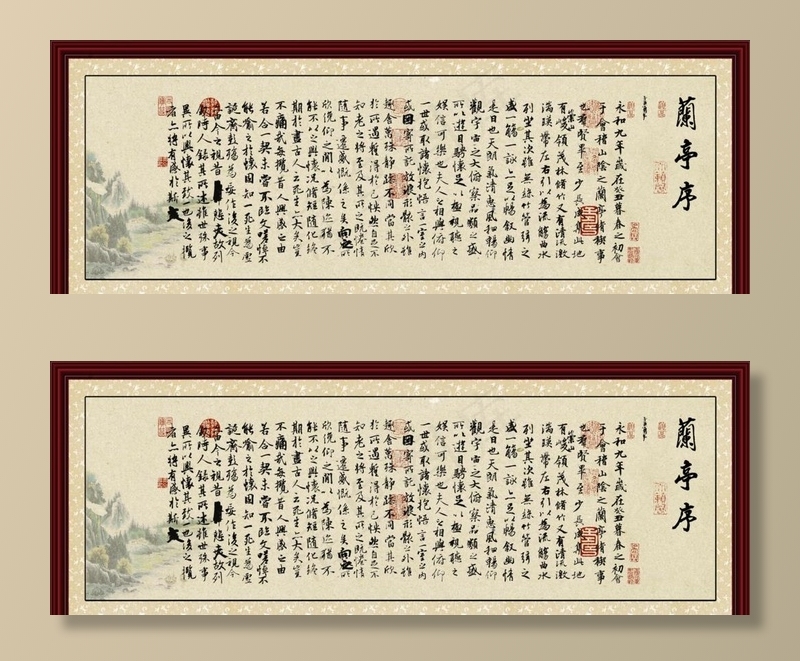 蘭亭序
永和九年歲在癸丑暮春之初會
于會稽山陰之蘭亭脩稧事
也羣賢畢至少長咸集此地
有崇山峻領茂林脩竹又有清流激
湍暎帶左右引以為流觴曲水
列坐其次雖無絲竹管弦之
盛一觴一詠亦足以暢敘幽情
是日也天朗氣清惠風和暢仰
觀宇宙之大俯察品類之盛
所以遊目騁懷足以極視聽之
娛信可樂也夫人之相與俯仰
一世或取諸懷抱悟言一室之內
或因寄所託放浪形骸之外雖
趣舍萬殊靜躁不同當其欣
於所遇蹔得於己怏然自足不
知老之將至及其所之既惓情
隨事遷感慨係之矣向之所
欣俛仰之閒以為陳迹猶不
能不以之興懷況脩短隨化終
期於盡古人云死生亦大矣豈
不痛哉每攬昔人興感之由
若合一契未嘗不臨文嗟悼不
能喻之於懷固知一死生為虛
誕齊彭殤為妄作後之視今
亦由今之視昔悲夫故列
敘時人錄其所述雖世殊事
異所以興懷其致一也後之攬
者亦將有感於斯文
蘭亭序
永和九年歲在癸丑暮春之初會
于會稽山陰之蘭亭脩稧事
也羣賢畢至少長咸集此地
有崇山峻領茂林脩竹又有清流激
湍暎帶左右引以為流觴曲水
列坐其次雖無絲竹管弦之
盛一觴一詠亦足以暢敘幽情
是日也天朗氣清惠風和暢仰
觀宇宙之大俯察品類之盛
所以遊目騁懷足以極視聽之
娛信可樂也夫人之相與俯仰
一世或取諸懷抱悟言一室之內
或因寄所託放浪形骸之外雖
趣舍萬殊靜躁不同當其欣
於所遇蹔得於己怏然自足不
知老之將至及其所之既惓情
隨事遷感慨係之矣向之所
欣俛仰之閒以為陳迹猶不
能不以之興懷況脩短隨化終
期於盡古人云死生亦大矣豈
不痛哉每攬昔人興感之由
若合一契未嘗不臨文嗟悼不
能喻之於懷固知一死生為虛
誕齊彭殤為妄作後之視今
亦由今之視昔悲夫故列
敘時人錄其所述雖世殊事
異所以興懷其致一也後之攬
者亦將有感於斯文